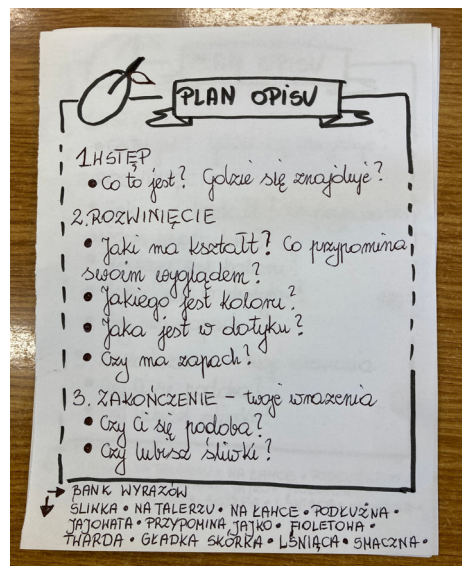 PLAN OPISU
1. WSTĘP
• Co to jest? Gdzie się znajduje?
2. ROZWINIĘCIE
• Jaki ma kształt? Co przypomina
swoim wyglądem?
• Jakiego jest koloru?
• Jaka jest w dotyku?
• Czy ma zapach?
3. ZAKOŃCZENIE – twoje wrażenia
• Czy Ci się podoba?
• Czy lubisz śliwki?
BANK WYRAZÓW
ŚLIWKA • NA TALERZU • NA ŁAWCE • PODŁUŻNA •
JAJOWATA • PRZYPOMINA JAJKO • FIOLETOWA •
TWARDA • GŁADKA SKÓRKA • LŚNIĄCA • SMACZNA •